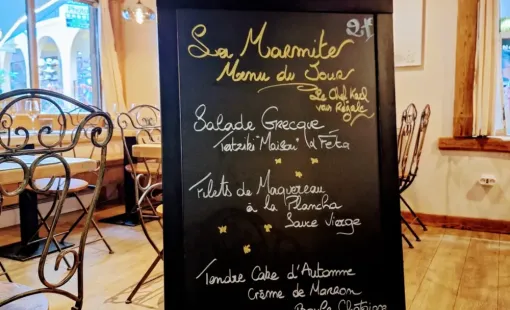 La Marmite
Menu du Jour
Le Chef Karl
vous Régale
Salade Grecque
Tzatziki "Maison" la Féta
Filets de Maquereau
à la Plancha
Sauce Vierge
Tendre Cake d'Automne
Crème de Marron